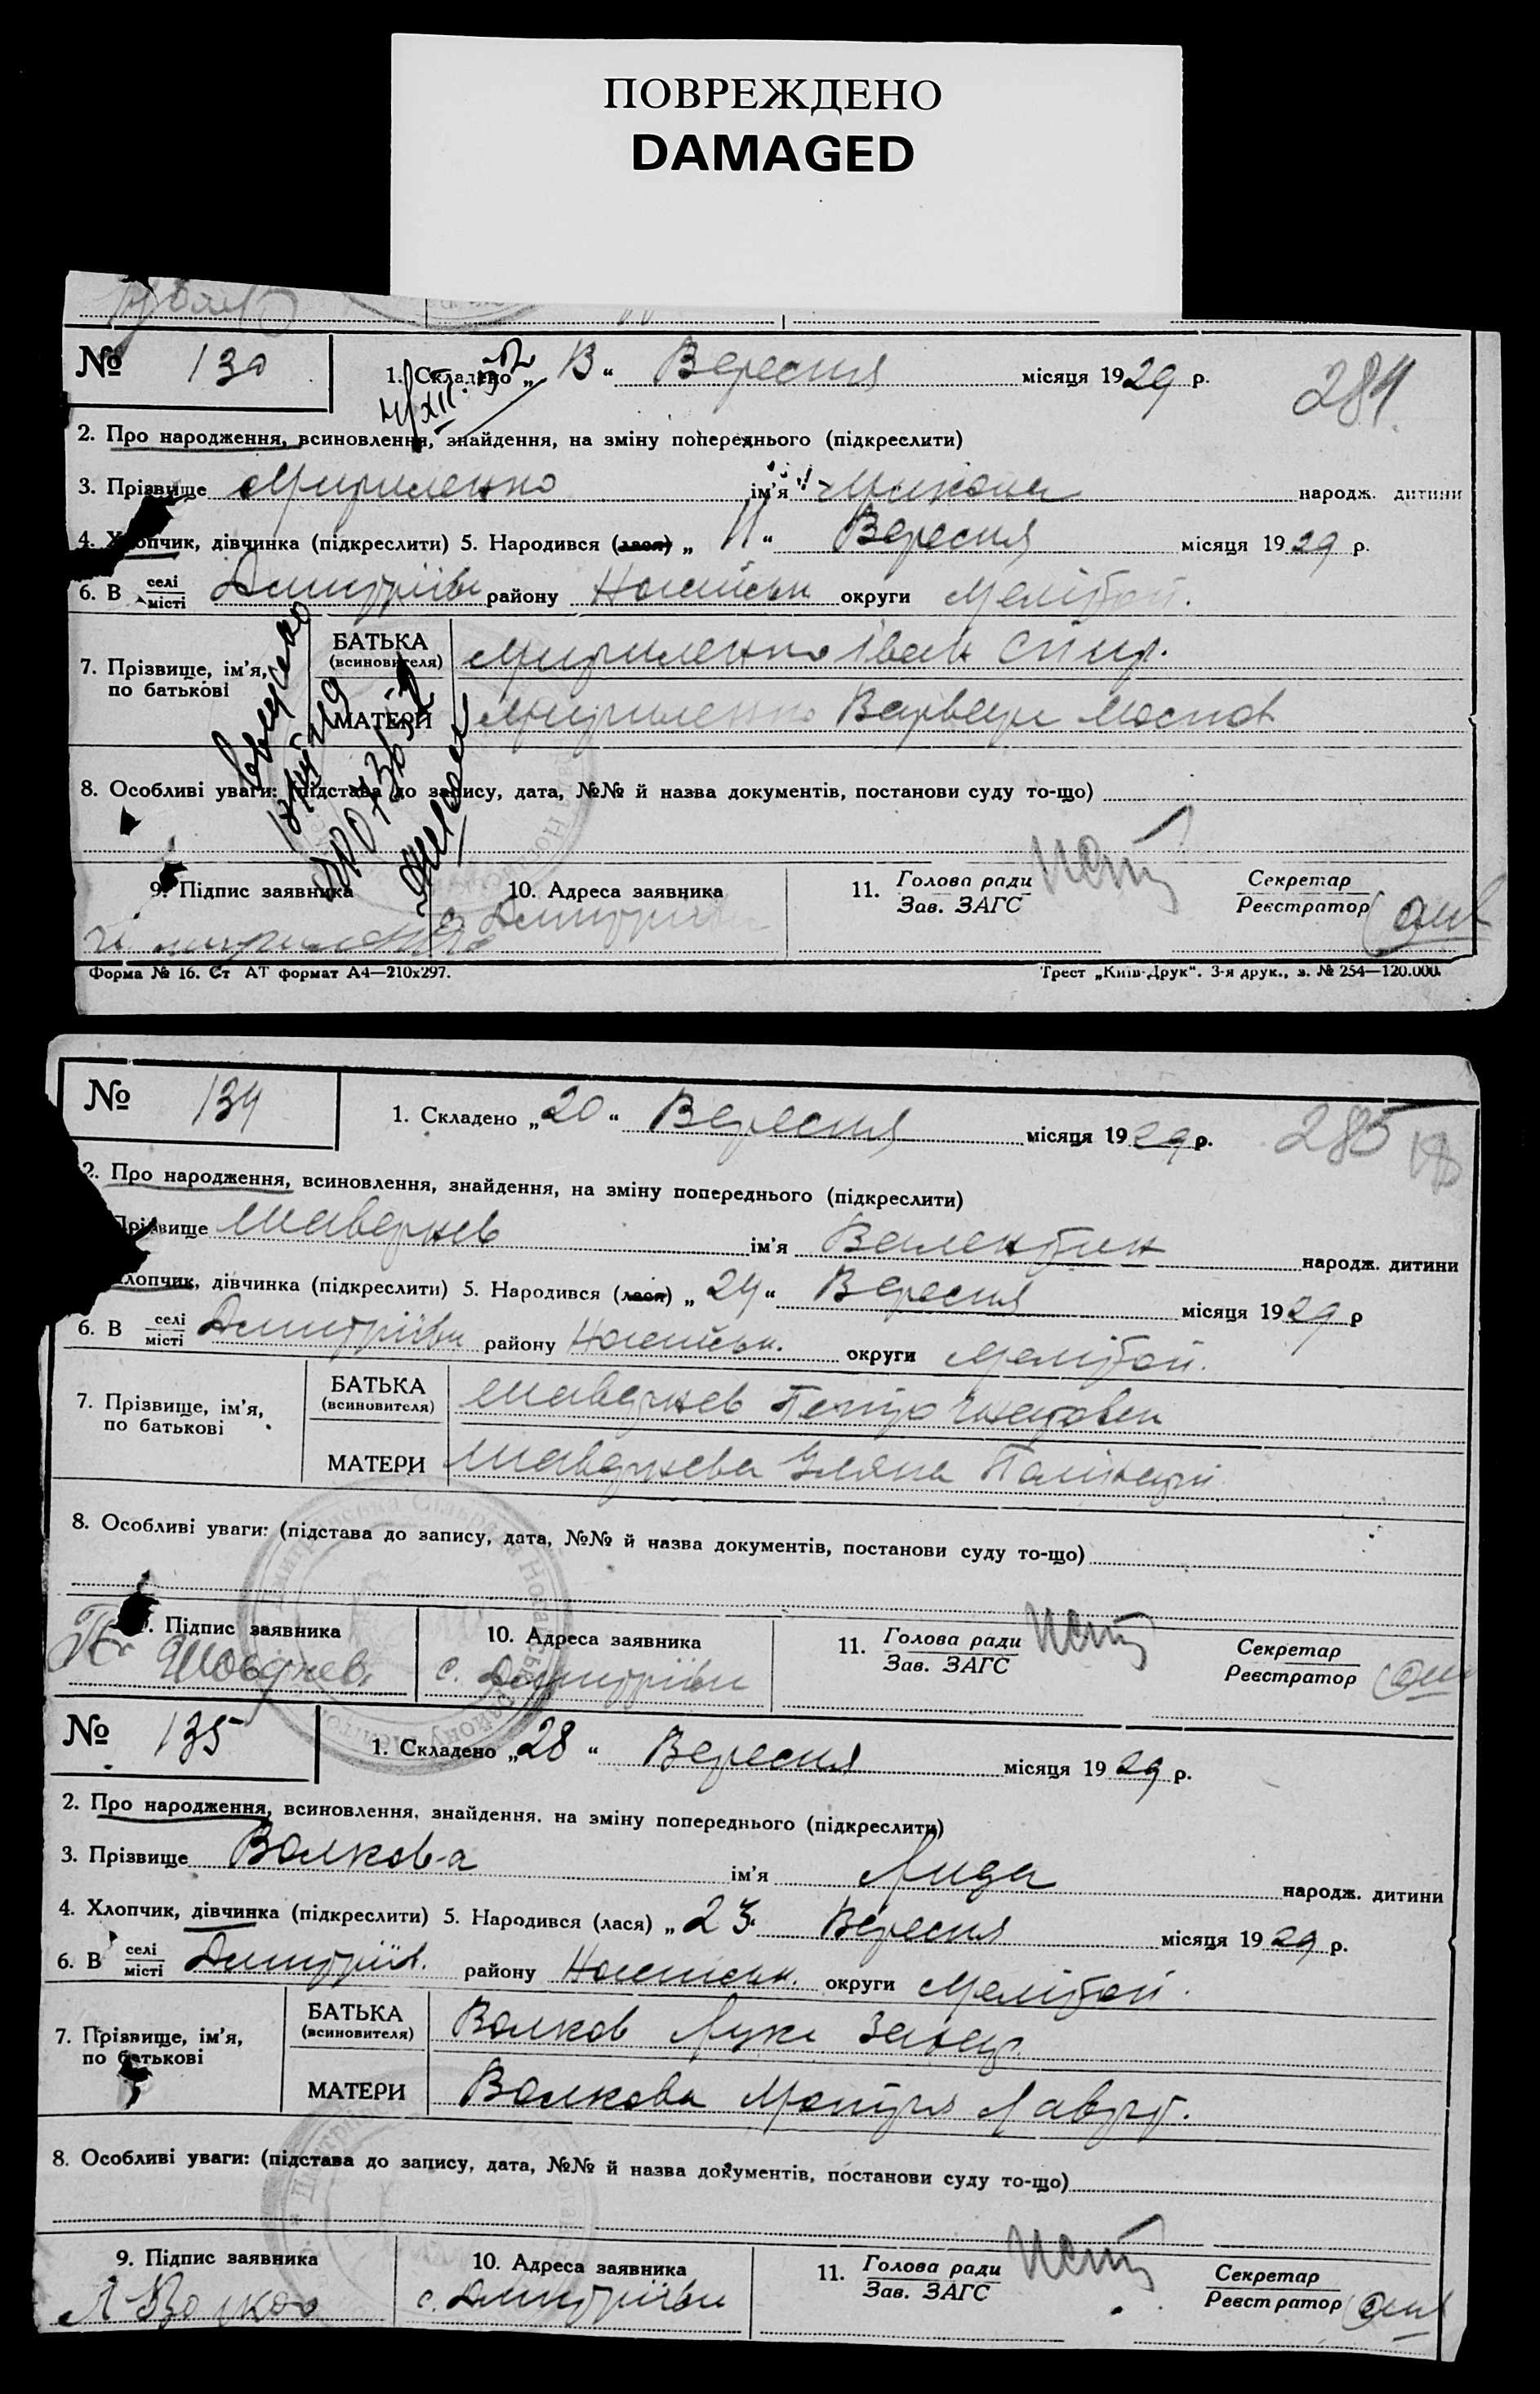 ПОВРЕЖДЕНО
DAMAGED
№ 130 1. Складено „ 13 “ Вересня місяця 1929 р. 284
2. Про народження, всиновлення, знайдення, на зміну попереднього (підкреслити)
3. Прізвище ім'я Микола народж. дитини
4. Хлопчик, дівчинка (підкреслити) 5. Народився (лася) „ 11 “ Вересня місяця 1929 р.
6. В селі місті Дмитріївк району Ногайськ округи Мелітоп.
7. Прізвище, ім'я, по батькові БАТЬКА (всиновителя) Іван Спир.
МАТЕРИ Варвара
8. Особливі уваги: (підстава до запису, дата, №№ й назва документів, постанови суду то-що)
9. Підпис заявника 10. Адреса заявника 11. Голова ради Зав. ЗАГС Секретар Реєстратор
с. Дмитрії
Форма № 16. Ст АТ формат А4—210х297. Трест „Київ-Друк“. 3-я друк., з. № 254—120.000.
№ 134 1. Складено „ 20 “ Вересня місяця 1929 р. 285
2. Про народження, всиновлення, знайдення, на зміну попереднього (підкреслити)
Прізвище Шавернев ім'я Валентин народж. дитини
хлопчик, дівчинка (підкреслити) 5. Народився (лася) „ 24 “ Вересня місяця 1929 р
6. В селі місті Дмитріївк району Ногайськ. округи Мелітоп.
7. Прізвище, ім'я, по батькові БАТЬКА (всиновителя) Шавернев Петро
МАТЕРИ Шавернева Уляна
8. Особливі уваги: (підстава до запису, дата, №№ й назва документів, постанови суду то-що)
9. Підпис заявника 10. Адреса заявника 11. Голова ради Зав. ЗАГС Секретар Реєстратор
с. Дмитріївк
№ 135 1. Складено „ 28 “ Вересня місяця 1929 р.
2. Про народження, всиновлення, знайдення, на зміну попереднього (підкреслити)
3. Прізвище Волкова ім'я Лида народж. дитини
4. Хлопчик, дівчинка (підкреслити) 5. Народився (лася) „ 23. Вересня місяця 1929 р.
6. В селі місті Дмитріїв. району Ногайськ. округи Мелітоп.
7. Прізвище, ім'я, по батькові БАТЬКА (всиновителя) Волков Лука Захар.
МАТЕРИ Волкова Мотря Лаврт.
8. Особливі уваги: (підстава до запису, дата, №№ й назва документів, постанови суду то-що)
9. Підпис заявника 10. Адреса заявника 11. Голова ради Зав. ЗАГС Секретар Реєстратор
Л Волков с. Дмитріївк